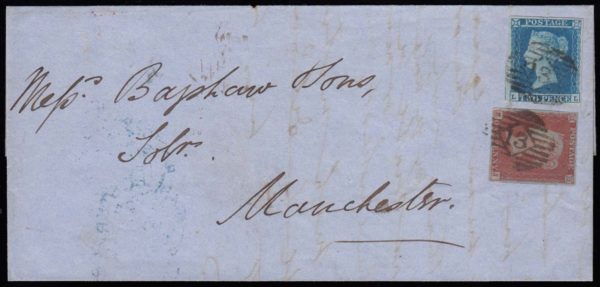 POSTAGE
L TWO PENCE L
Messrs Bagshaw & Sons,
Solrs.
Manchester.